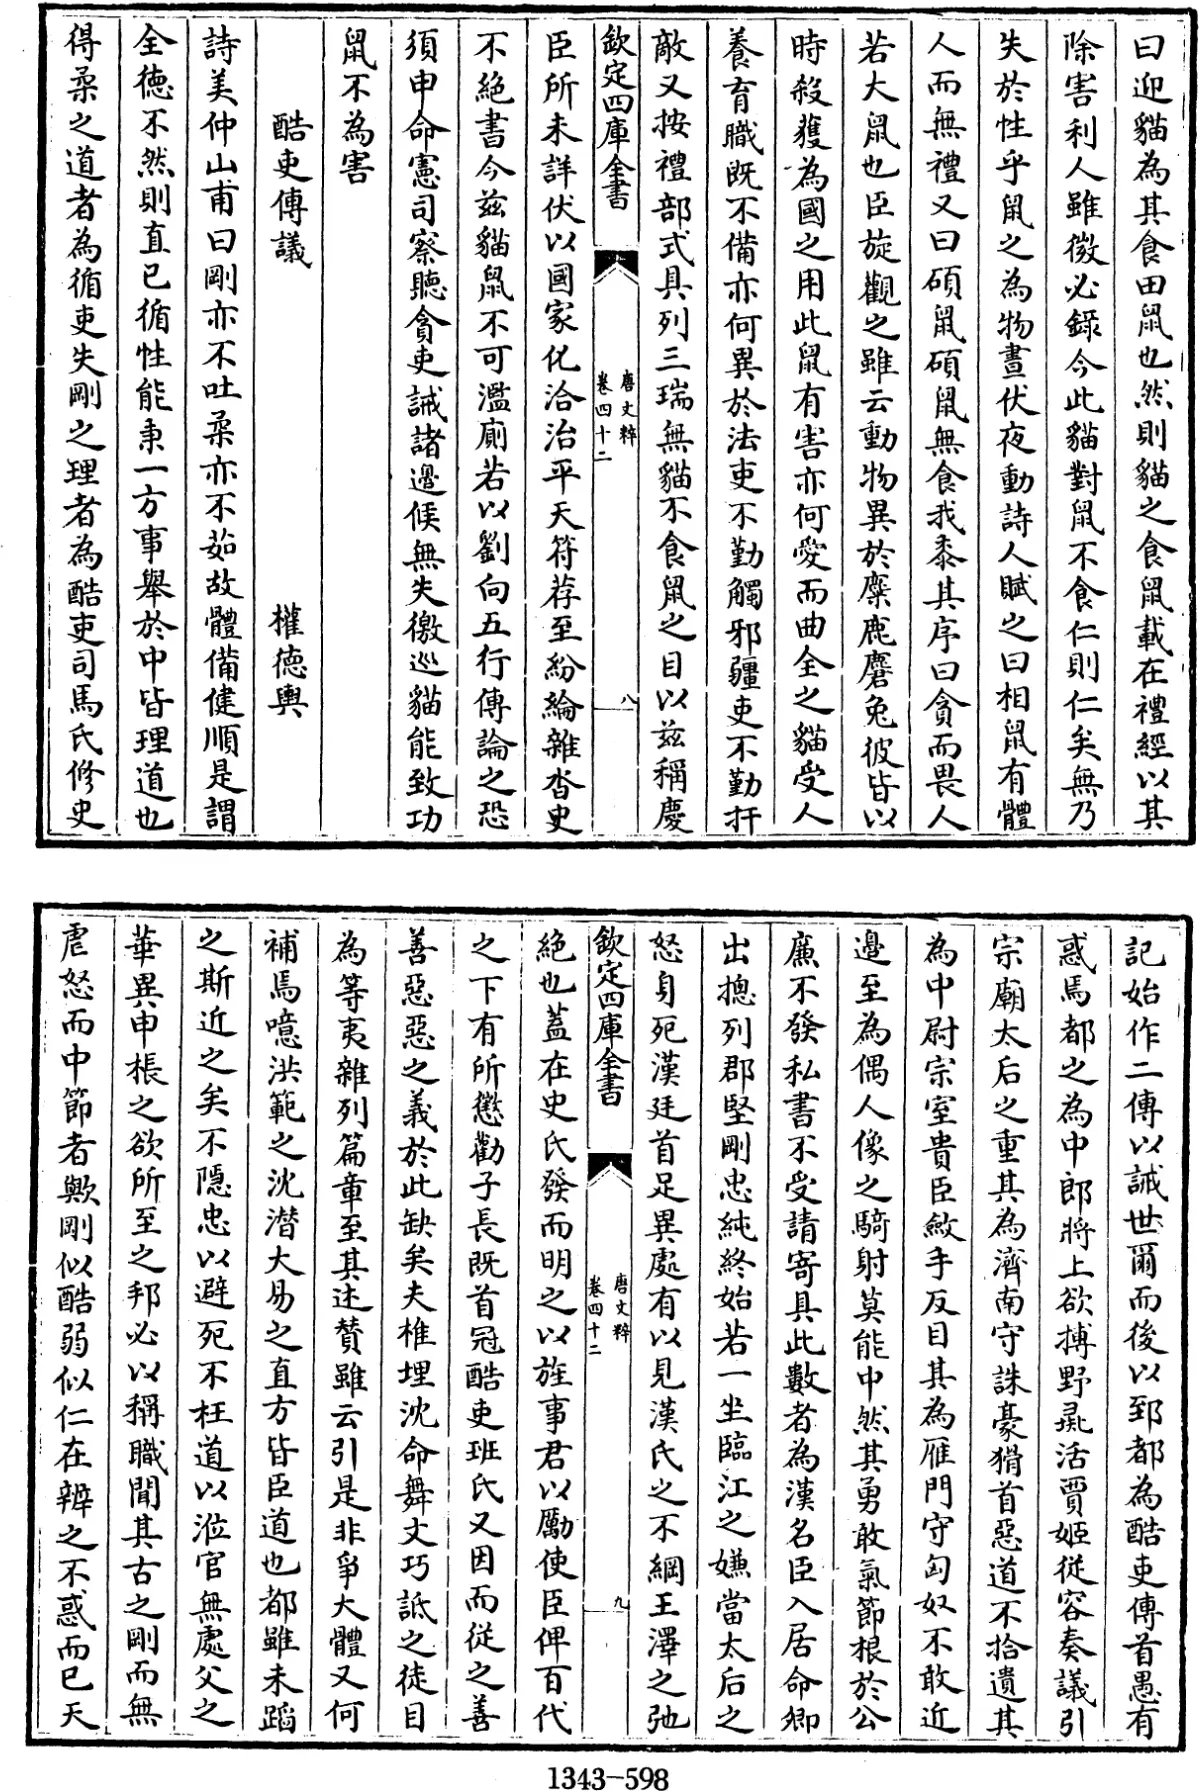 曰迎貓為其食田鼠也然則貓之食鼠載在禮經以其
除害利人雖微必錄今此貓對鼠不食仁則仁矣無乃
失於性乎鼠之為物晝伏夜動詩人賦之曰相鼠有體
人而無禮又曰碩鼠碩鼠無食我黍其序曰貪而畏人
若大鼠也臣旋觀之雖云動物異於麋鹿麏兔彼皆以
時殺獲為國之用此鼠有害亦何愛而曲全之貓受人
養育職既不備亦何異於法吏不勤觸邪疆吏不勤扞
敵又按禮部式具列三瑞無貓不食鼠之目以茲稱慶
欽定四庫全書
唐文粹
卷四十二
八
臣所未詳伏以國家化洽治平天符荐至紛綸雜沓史
不絕書今茲貓鼠不可濫廁若以劉向五行傳論之恐
須申命憲司察聽貪吏誡諸邊候無失徼巡貓能致功
鼠不為害
酷吏傳議 權德輿
詩美仲山甫曰剛亦不吐柔亦不茹故體備健順是謂
全德不然則直已循性能秉一方事舉於中皆理道也
得柔之道者為循吏失剛之理者為酷吏司馬氏修史
記始作二傳以誡世爾而後以郅都為酷吏傳首愚有
惑焉都之為中郎將上欲搏野彘活賈姬從容奏議引
宗廟太后之重其為濟南守誅豪猾首惡道不拾遺其
為中尉宗室貴臣斂手反目其為雁門守匈奴不敢近
邊至為偶人像之騎射莫能中然其勇敢氣節根於公
廉不發私書不受請寄具此數者為漢名臣入居命卿
出摠列郡堅剛忠純終始若一坐臨江之嫌當太后之
怒身死漢廷首足異處有以見漢氏之不綱王澤之弛
欽定四庫全書
唐文粹
卷四十二
九
絕也蓋在史氏發而明之以旌事君以勵使臣俾百代
之下有所懲勸子長既首冠酷吏班氏又因而從之善
善惡惡之義於此缺矣夫椎埋沈命舞文巧詆之徒目
為等夷雜列篇章至其述贊雖云引是非爭大體又何
補焉噫洪範之沈潛大易之直方皆臣道也都雖未蹈
之斯近之矣不隱忠以避死不枉道以涖官無處父之
華異申棖之欲所至之邦必以稱職聞其古之剛而無
虐怒而中節者歟剛似酷弱似仁在辨之不惑而已天
1343-598